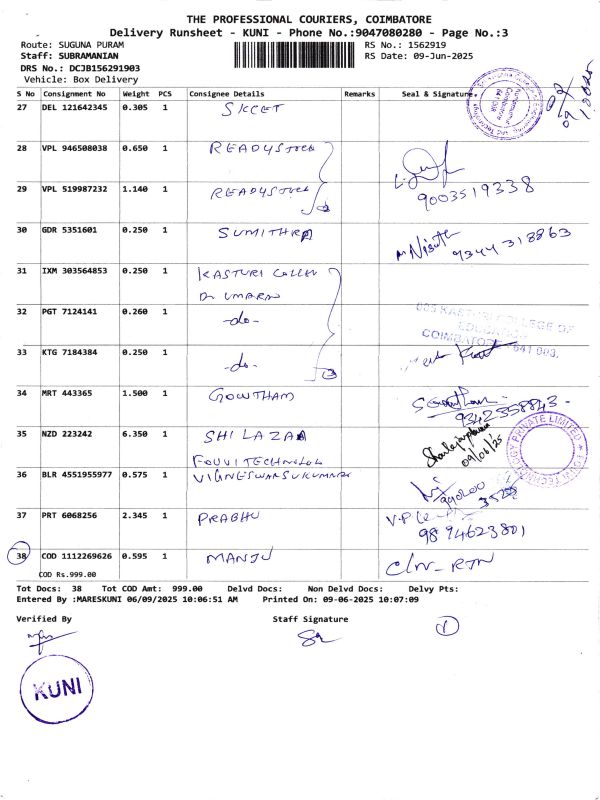 THE PROFESSIONAL COURIERS, COIMBATORE
Delivery Runsheet - KUNI - Phone No.:9047080280 - Page No.:3
Route: SUGUNA PURAM RS No.: 1562919
Staff: SUBRAMANIAN RS Date: 09-Jun-2025
DRS No.: DCJB156291903
Vehicle: Box Delivery
S No Consignment No Weight PCS Consignee Details Remarks Seal & Signature
27 DEL 121642345 0.305 1 SKCET
28 VPL 946508038 0.650 1 READYSTOCK
29 VPL 519987232 1.140 1 READYSTOCK 9003519338
30 GDR 5351601 0.250 1 SUMITHRA 9344318863
31 IXM 303564853 0.250 1 KASTURI COLLEGE
32 PGT 7124141 0.260 1 -do-
COLLEGE OF
EDUCATION
COIMBATORE - 641 003.
33 KTG 7184384 0.250 1 -do-
34 MRT 443365 1.500 1 GOWTHAM 9342358843
35 NZD 223242 6.350 1 SHILAZAA 09/06/25
36 BLR 4551955977 0.575 1 VIGNESWAR SUKUMAR
37 PRT 6068256 2.345 1 PRABHU 9894623801
38 COD 1112269626 0.595 1 MANJU
COD Rs.999.00
Tot Docs: 38 Tot COD Amt: 999.00 Delvd Docs: Non Delvd Docs: Delvy Pts:
Entered By :MARESKUNI 06/09/2025 10:06:51 AM Printed On: 09-06-2025 10:07:09
Verified By Staff Signature
1
KUNI